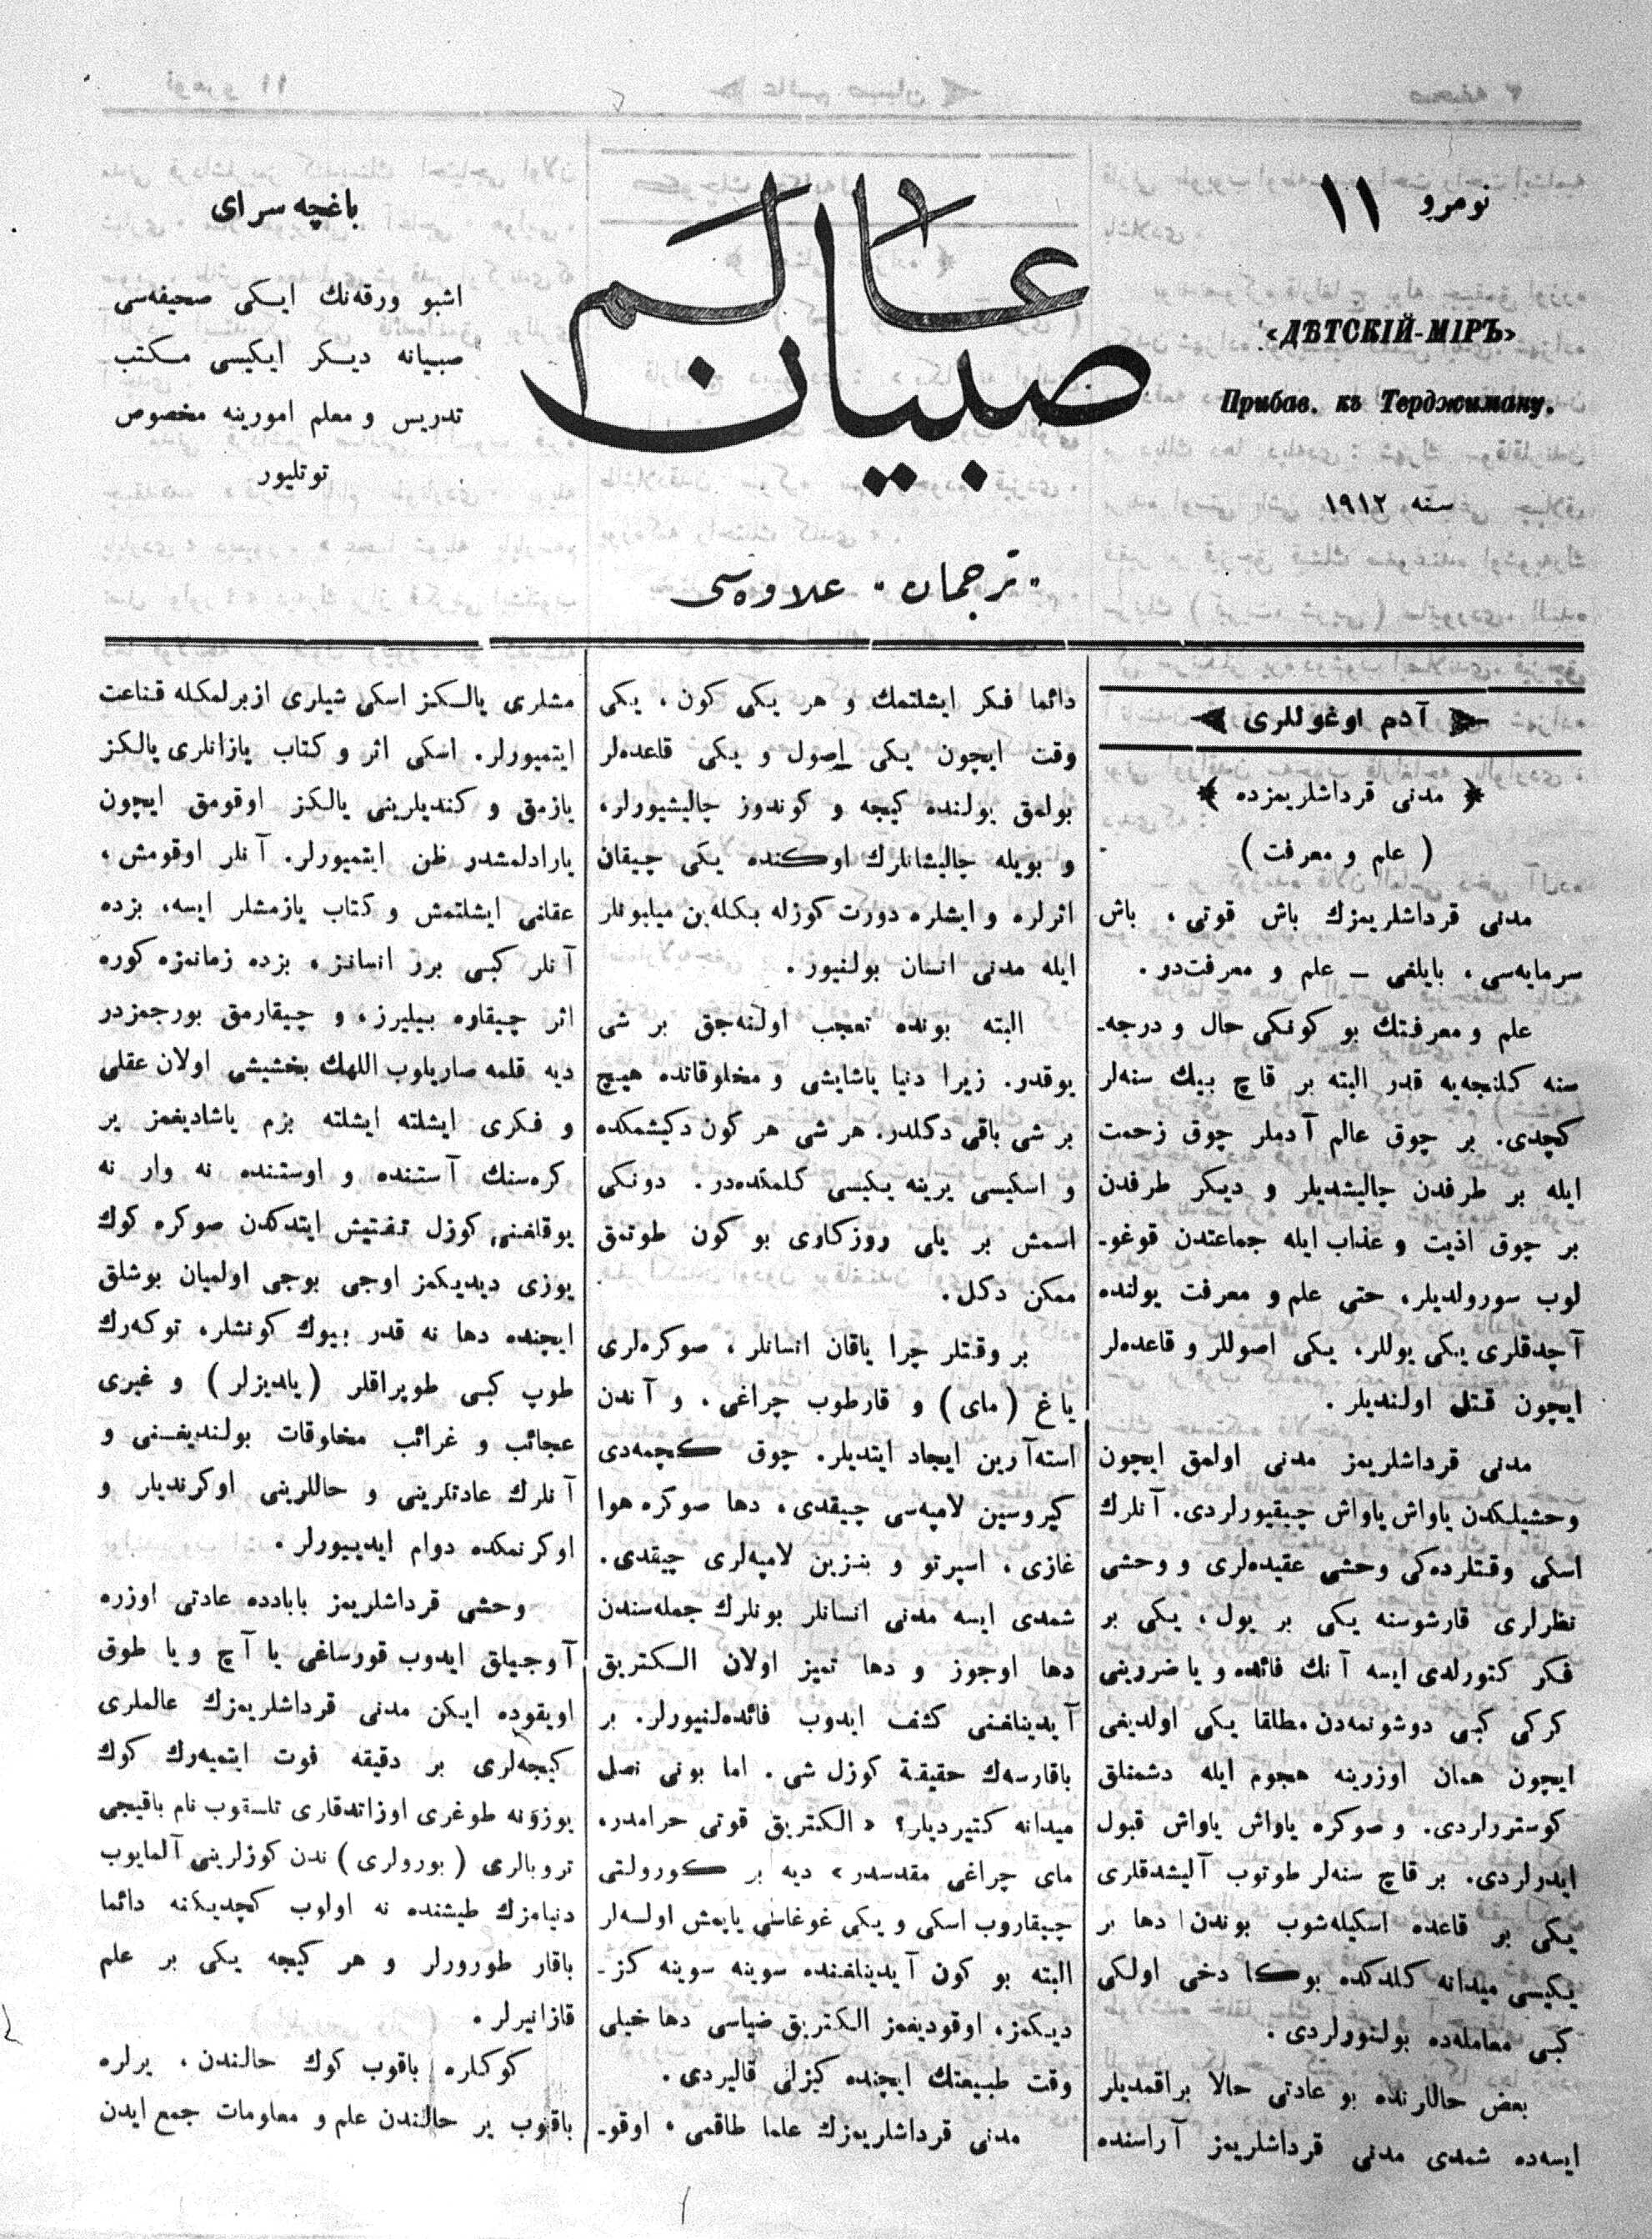 نومرو ١١
«ДѢТСКІЙ-МІРЪ»
Прибав. къ Терджиману.
سنه ١٩١٢
عالم
صبيان
"ترجمان" علاوه‌سى
باغچه سراى
اشبو ورقه‌نك ايكى صحيفه‌سى
صبيانه ديكر ايكيسى مكتب
تدريس و معلم امورينه مخصوص
توتليور
آدم اوغوللرى
مدنى قرداشلريمزده
( علم و معرفت )
مدنى قرداشلريمزك باش قوتى ، باش
سرمايه‌سى ، بايلغى ــ علم و معرفت‌در .
علم و معرفتك بو كونكى حال و درجه‌ـ
سنه كلنجه‌يه قدر البته بر قاچ بيك سنه‌لر
كچدى. بر چوق عالم آدملر چوق زحمت
ايله بر طرفدن چاليشديلر و ديكر طرفدن
بر چوق اذيت و عذاب ايله جماعتدن قوغو‌ـ
لوب سورولديلر، حتى علم و معرفت يولنده
آچدقلرى يكى يوللر، يكى اصوللر و قاعده‌لر
ايچون قتل اولنديلر .
مدنى قرداشلريمز مدنى اولمق ايچون
وحشيلكدن ياواش ياواش چيقيورلردى. آنلرك
اسكى وقتلرده‌كى وحشى عقيده‌لرى و وحشى
نظرلرى قارشوسنه يكى بر يول ، يكى بر
فكر كتورلدى ايسه آنك فائده و يا ضررينى
كركى كبى دوشونمه‌دن مطلقا يكى اولديغى
ايچون همان اوزرينه هجوم ايله دشمنلق
كوسترراردى. و صوكره ياواش ياواش قبول
ايدرلردى. بر قاچ سنه‌لر طوتوب آليشدقلرى
يكى بر قاعده اسكيله‌شوب بوندن دها بر
يكيسى ميدانه كلدكده بوكا دخى اولكى
كبى معامله‌ده بولنورلردى .
بعض حاللرنده بو عادتى حالا براقمديلر
ايسه‌ده شمدى مدنى قرداشلريمز آراسنده
دائما فكر ايشلتمك و هر يكى كون ، يكى
وقت ايچون يكى اصول و يكى قاعده‌لر
بولمق يولنده كيجه و كوندوز چاليشيورلر،
و بويله چاليشانلرك اوكنده يكى چيقان
اثرلره و ايشلره دورت كوزله بكله‌ين ميليونلر
ايله مدنى انسان بولنيور .
البته بونده تعجب اولنه‌جق بر شى
يوقدر. زيرا دنيا ياشايشى و مخلوقاتده هيچ
بر شى باقى دكلدر. هر شى هر كون دكيشمكده
و اسكيسى يرينه يكيسى كلمكده‌در . دونكى
اسمش بر يلى روزكارى بو كون طوتمق
ممكن دكل .
بر وقتلر چرا ياقان انسانلر ، صوكره‌لرى
ياغ (ماى) و قارطوب چراغى ، و آندن
استه‌آرين ايجاد ايتديلر. چوق كچمه‌دى
كيروسين لامپه‌سى چيقدى، دها صوكره هوا
غازى ، اسپرتو و بنزين لامپه‌لرى چيقدى.
شمدى ايسه مدنى انسانلر بونلرك جمله‌سندن
دها اوجوز و دها تميز اولان الكتريق
آيديناغنى كشف ايدوب فائده‌لنيورلر. بر
باقارسه‌ك حقيقة كوزل شى . اما بونى نصل
ميدانه كتيرديلر؟ « الكتريق قوتى حرامدر،
ماى چراغى مقدسدر» ديه بر كورولتى
چيقاروب اسكى و يكى غوغاسى ياپمش اولسه‌لر
البته بو كون آيدينلغنده سوينه سوينه كز‌ـ
ديكمز، اوقوديغمز الكتريق ضياسى دها خيلى
وقت طبيعتك ايچنده كيزلى قاليردى .
مدنى قرداشلريمزك علما طاقمى ، اوقو‌ـ
مشلرى يالكز اسكى شيلرى ازبرلمكله قناعت
ايتميورلر. اسكى اثر و كتاب يازانلرى يالكز
يازمق و كنديلرينى يالكز اوقومق ايچون
يارادلمشدر ظن ايتميورلر. آنلر اوقومش ،
عقلنى ايشلتمش و كتاب يازمشلر ايسه، بزده
آنلر كبى برر انسانز ، بزده زمانمزه كوره
اثر چيقاره بيليرز ، و چيقارمق بورجمزدر
ديه قلمه صاريلوب اللهك بخشيشى اولان عقلى
و فكرى ايشلته ايشلته بزم ياشاديغمز ير
كره‌سنك آستنده و اوستنده نه وار نه
يوقلغنى كوزل تفتيش ايتدكدن صوكره كوك
يوزى ديديكمز اوجى بوجى اولميان بوشلق
ايچنده دها نه قدر بيوك كونشلر، توكه‌رك
طوپ كبى طوپراقلر (يلديزلر) و غيرى
عجائب و غرائب مخلوقات بولنديغنى و
آنلرك عادتلرينى و حاللرينى اوكرنديلر و
اوكرنمكده دوام ايدييورلر .
وحشى قرداشلريمز بابادده عادتى اوزره
آوجيلق ايدوب قورساغى يا آچ و يا طوق
اويقوده ايكن مدنى قرداشلريمزك عالملرى
كيجه‌لرى بر دقيقه فوت ايتميه‌رك كوك
يوزونه طوغرى اوزاتدقلرى تلسقوب نام باقيجى
تروبالرى ( بورولرى ) ندن كوزلرينى آلمايوب
دنيامزك طيشنده نه اولوب كچديكنه دائما
باقار طورورلر و هر كيجه يكى بر علم
قازانيرلر .
كوكلره باقوب كوك حالندن ، يرلره
باقوب ير حالندن علم و معلومات جمع ايدن